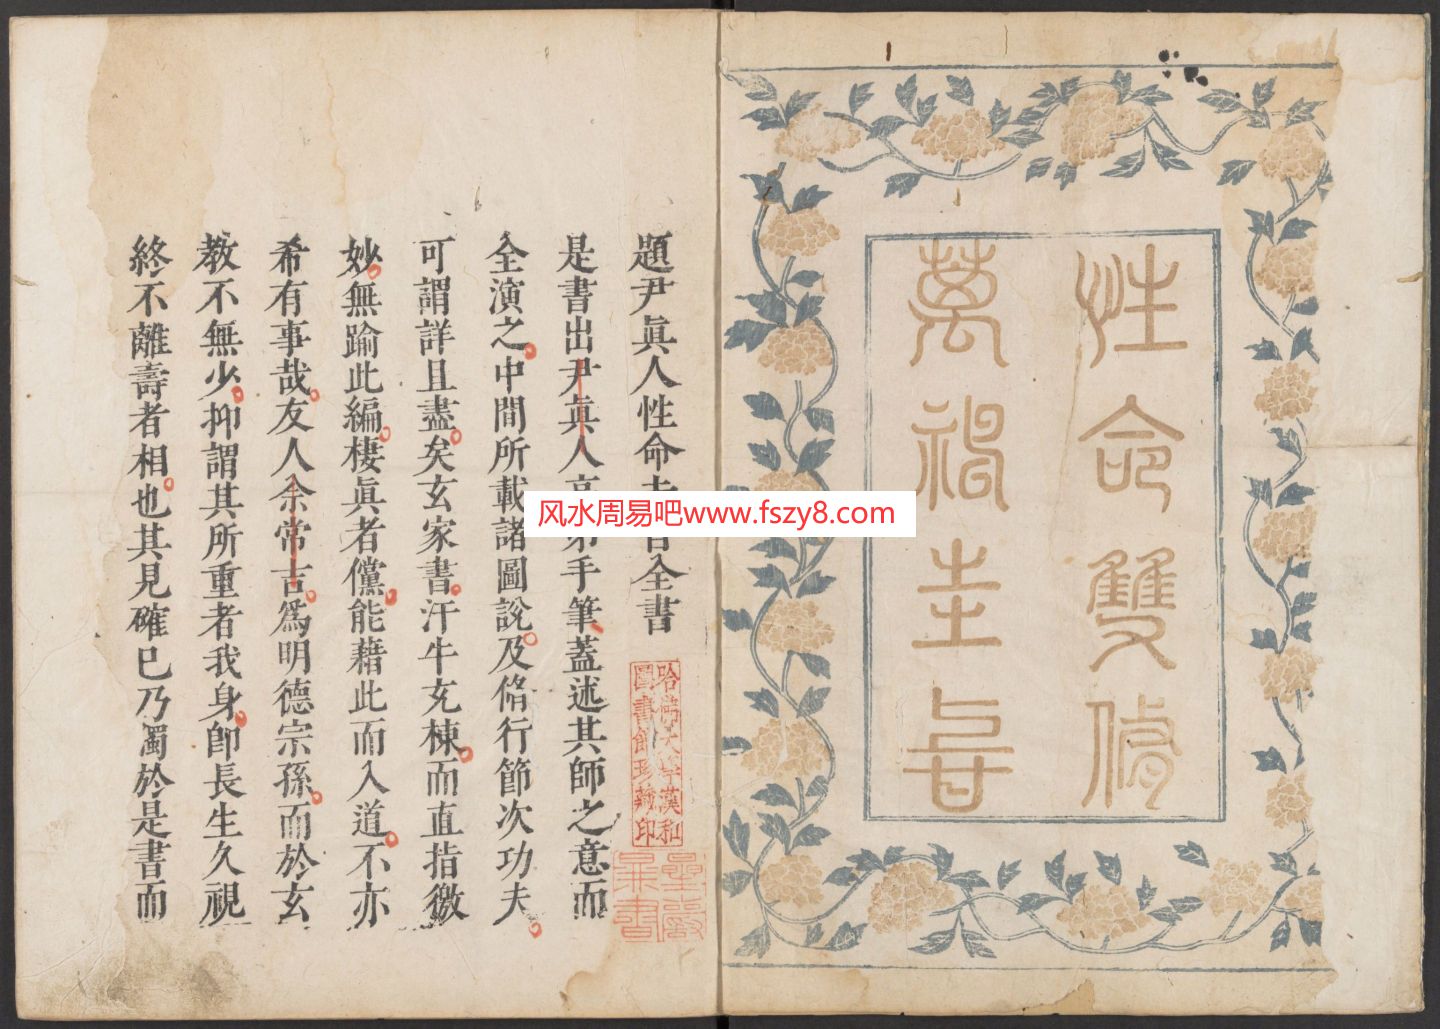 性命雙脩
萬神圭旨
題尹眞人性命圭旨全書
是書出尹眞人高第手筆蓋述其師之意而
全演之中間所載諸圖說及脩行節次功夫
可謂詳且盡矣玄家書汗牛充棟而直指徽
妙無踰此編棲眞者儻能藉此而入道不亦
希有事哉友人余常吉爲明德宗孫而於玄
教不無少抑謂其所重者我身卽長生久視
終不離壽者相也其見確巳乃獨於是書而
哈佛大學漢和
圖書館珍藏印
风水周易吧www.fszy8.com